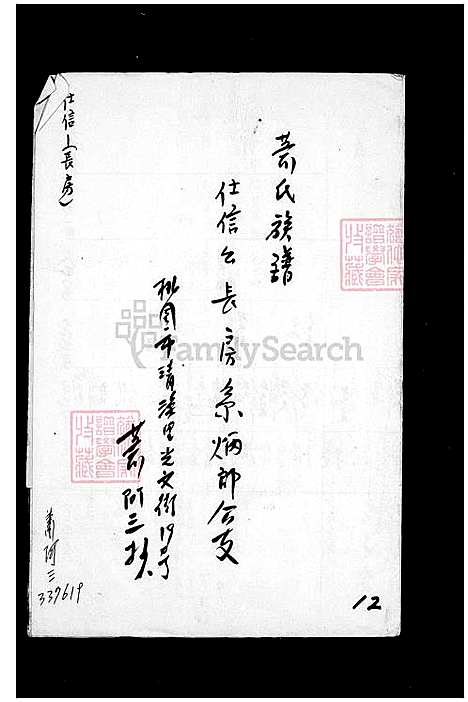 仕信(長房)
蕭氏族譜
仕信公長房系炳郎公支
桃園市清溪里光文街19号
蕭阿三
蕭阿三
337619
12
FamilySearch